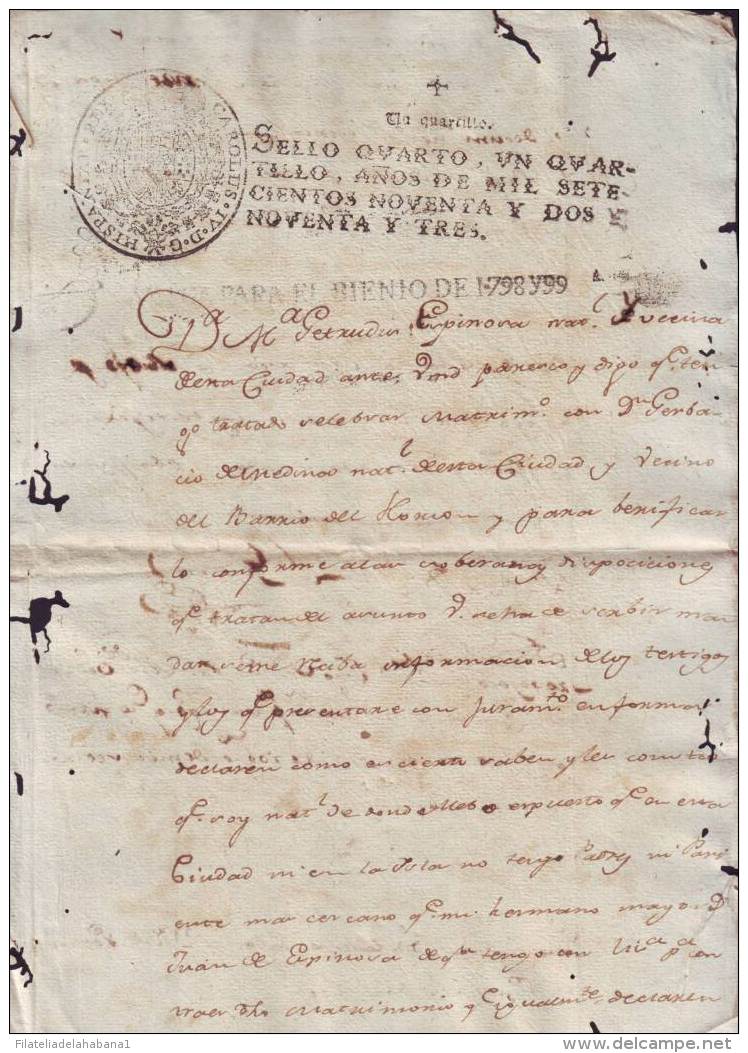 CAROLUS · IV · D · G · HISPA
Un quartillo.
SELLO QVARTO, VN QVAR-
TILLO, AÑOS DE MIL SETE-
CIENTOS NOVENTA Y DOS
NOVENTA Y TRES.
PARA EL BIENIO DE 1798 Y 99
Dª Mª Getrudis Espinosa natˡ y vecina
de esta Ciudad ante Vmd paresco y digo qᵉ ten
go tratado selebrar Matrimº con Dⁿ Gerba-
cio de Medina natˡ de esta Ciudad y Vecino
del Barrio del Horcon y para berificar
lo conforme a las soberanas disposiciones
qᵉ tratan del asunto se ha de serbir man
dar se me resiba informacion de los testigos
y los qᵉ presentare con Juramᵗº en forma
declaren como es cierto saben y les consta
qᵉ soy natˡ de donde llebo espuesto qᵉ en esta
Ciudad ni en la Isla no tengo Padres ni Pari
ente mas cercano qᵉ mi hermano mayor Dⁿ
Juan de Espinosa de qⁿ tengo con licª pª con
traer dho Matrimonio y qᵉ igualmᵗᵉ declaren
Filateliadelahabana1
delcampe.net